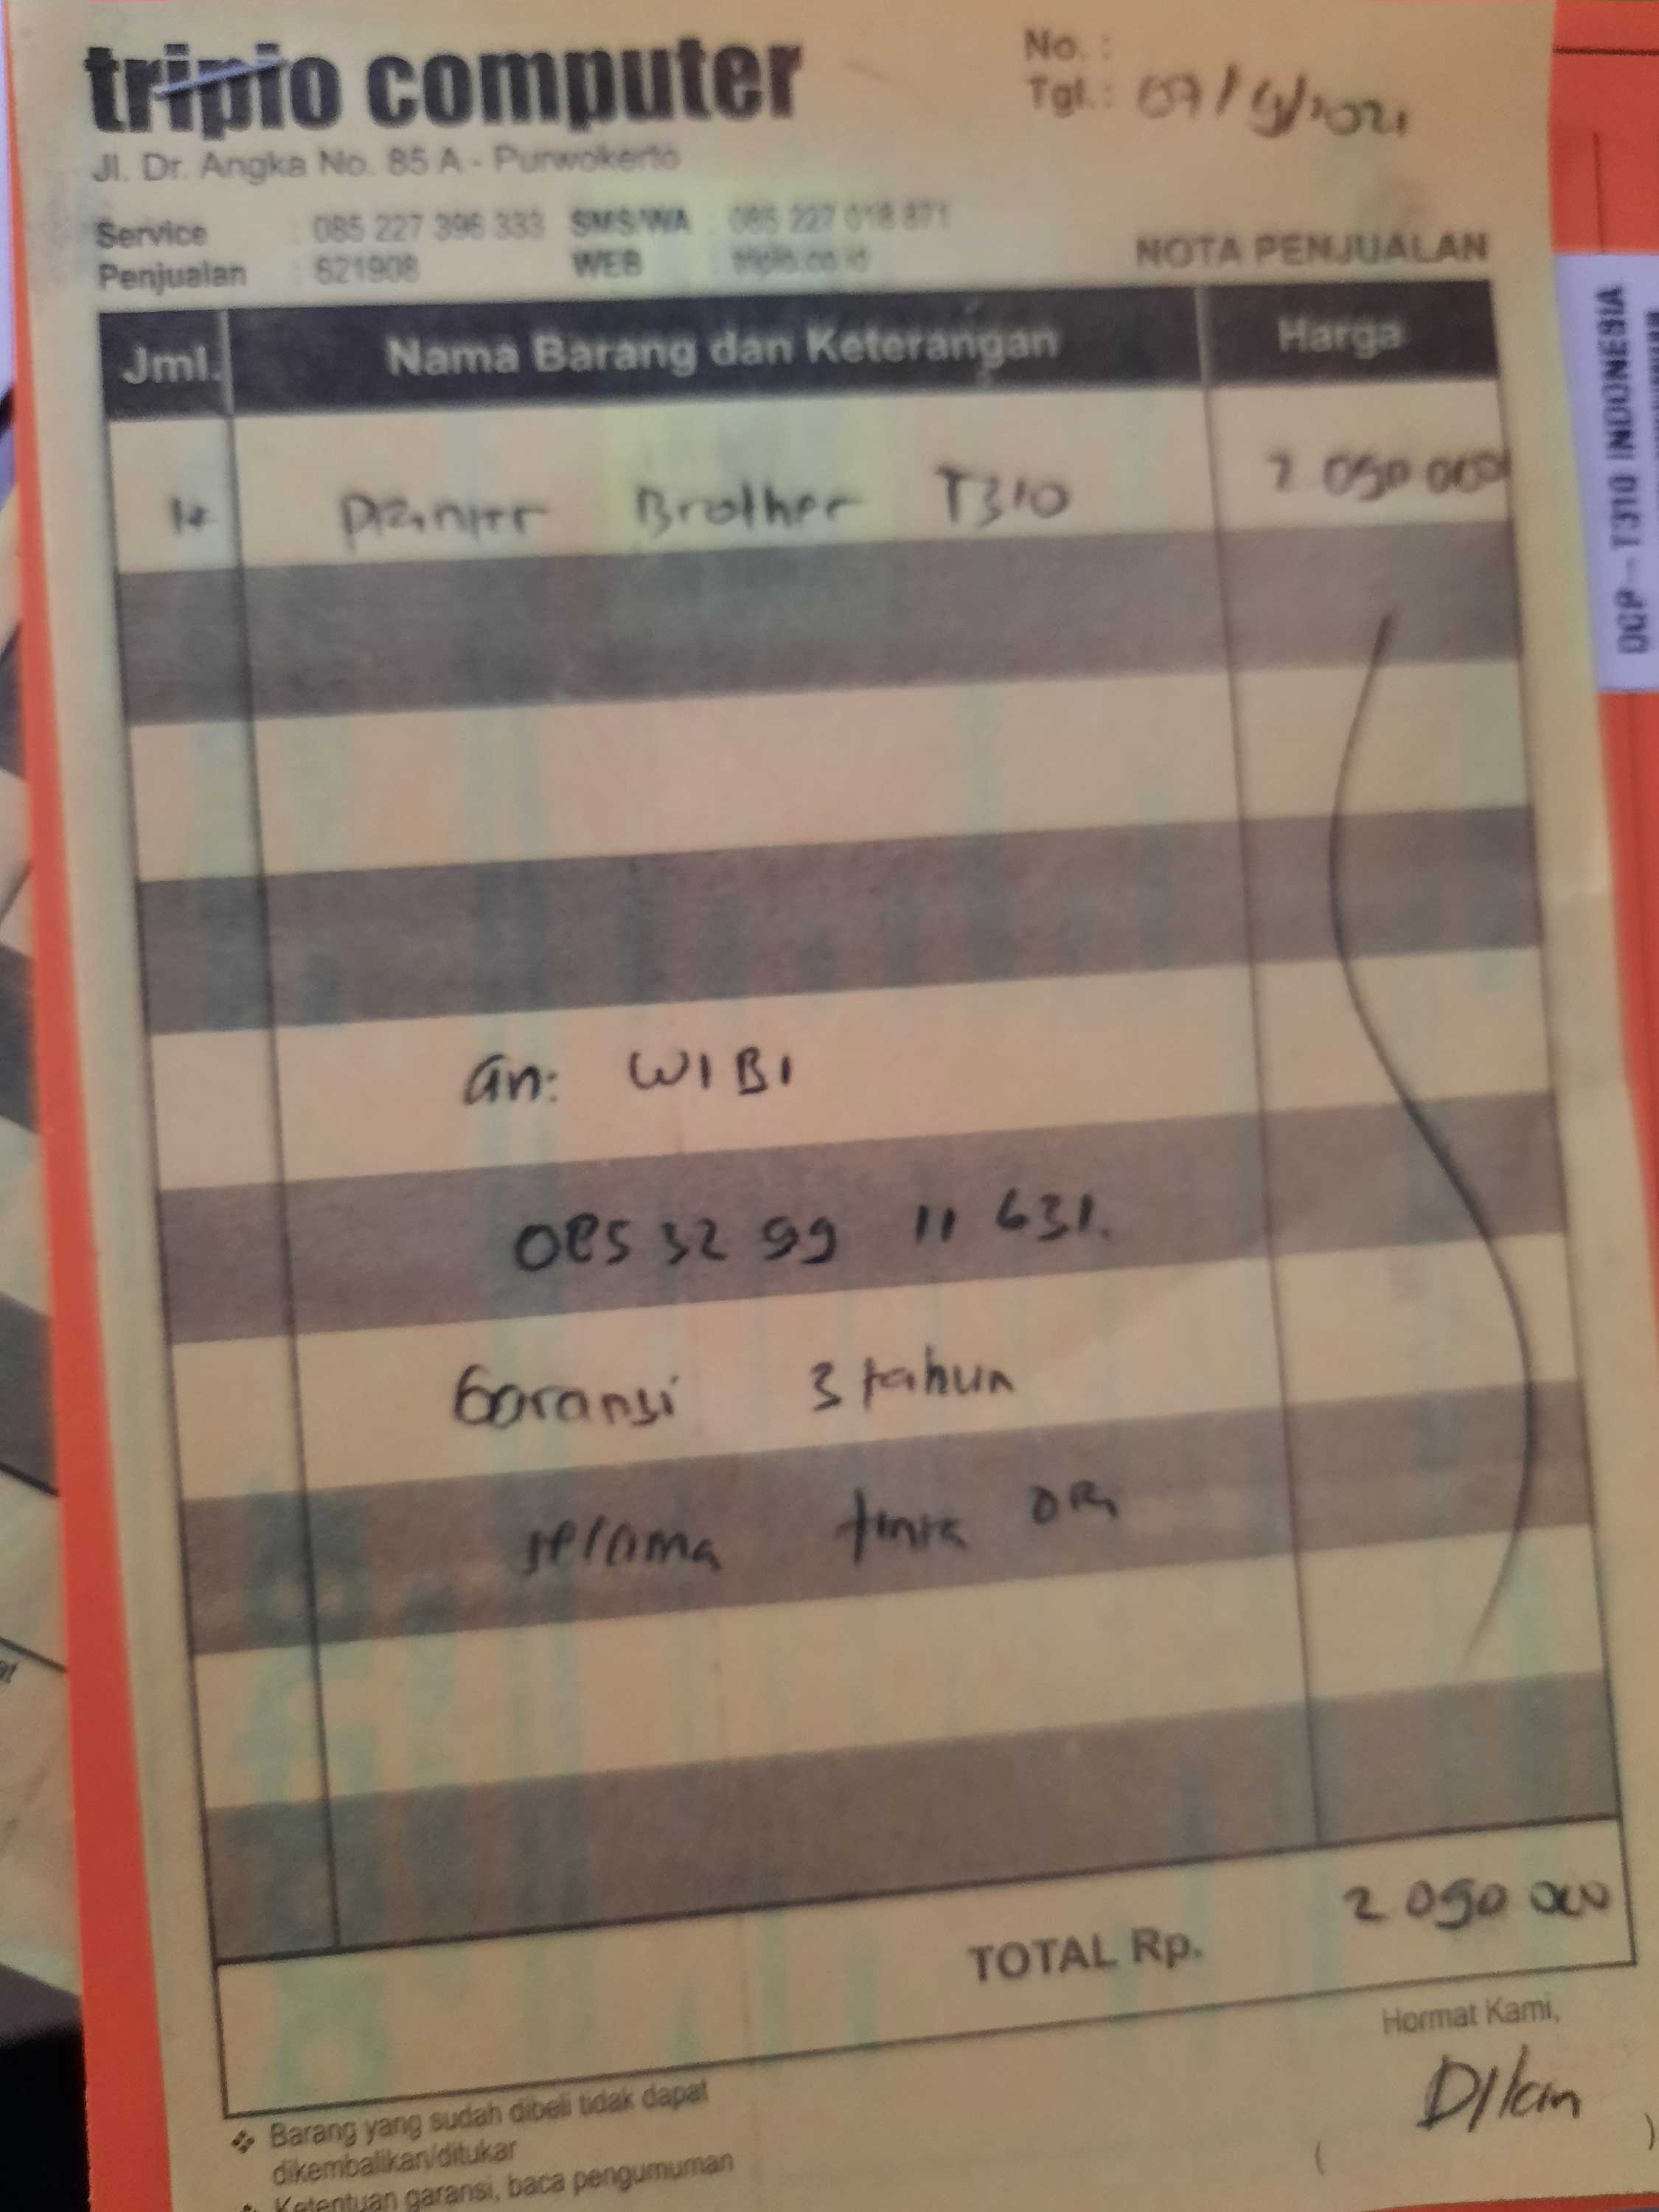 triplo computer
No. :
Tgl. : 07/9/2021
Jl. Dr. Angka No. 85 A - Purwokerto
Service : 085 227 396 333 SMS/WA : 085 227 018 871
Penjualan : 621908 WEB : triplo.co.id
NOTA PENJUALAN
Jml. Nama Barang dan Keterangan Harga
Printer Brother T310 2 090 000
an: WIBI
085 32 99 11 631.
Garansi 3 tahun
selama tinta ORi
TOTAL Rp. 2 090 000
Hormat Kami,
Dilan
( )
❖ Barang yang sudah dibeli tidak dapat
dikembalikan/ditukar
❖ Ketentuan garansi, baca pengumuman
DCP - T310 INDONESIA